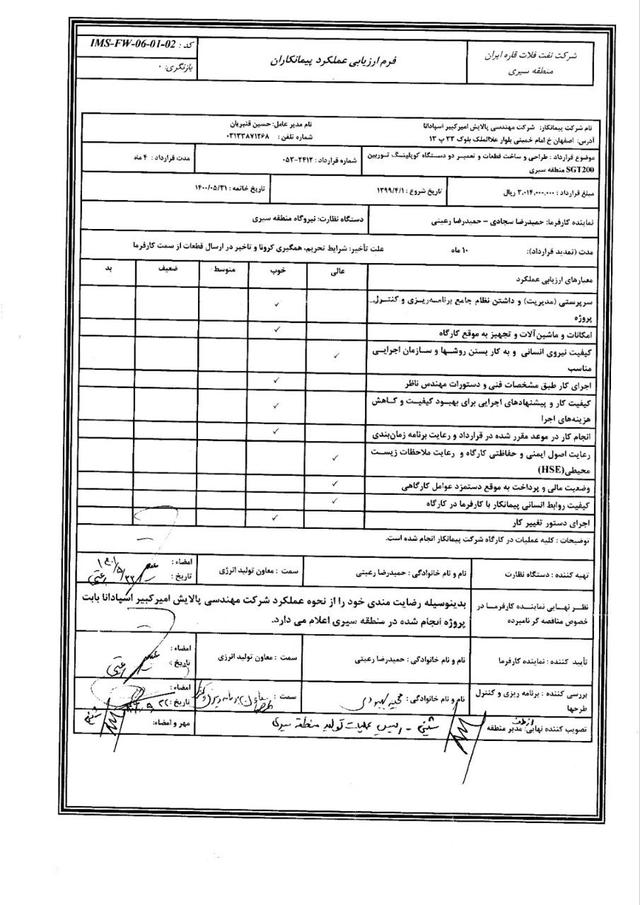 شرکت نفت فلات قاره ایران
منطقه سیری
فرم ارزیابی عملکرد پیمانکاران
کد : IMS-FW-06-01-02
بازنگری : ۰
نام شرکت پیمانکار: شرکت مهندسی پالایش امیرکبیر اسپادانا
نام مدیر عامل: حسین قنبریان
آدرس: اصفهان خ امام خمینی بلوار عطاالملک بلوک ۲۳ پ ۱۳
شماره تلفن : ۰۳۱۳۳۸۷۱۲۶۸
موضوع قرارداد : طراحی و ساخت قطعات و تعمیر دو دستگاه کوپلینگ توربین
SGT200 منطقه سیری
شماره قرارداد : ۲۴۱۳-۰۵۲
مدت قرارداد : ۴ ماه
مبلغ قرارداد : ۳،۰۱۴،۰۰۰،۰۰۰ ریال
تاریخ شروع : ۱۳۹۹/۴/۱
تاریخ خاتمه : ۱۴۰۰/۰۵/۳۱
نماینده کارفرما: حمیدرضا سجادی – حمیدرضا رعیتی
دستگاه نظارت: نیروگاه منطقه سیری
مدت (تمدید قرارداد): ۱۰ ماه
علت تأخیر: شرایط تحریم، همگیری کرونا و تاخیر در ارسال قطعات از سمت کارفرما
معیارهای ارزیابی عملکرد
عالی خوب متوسط ضعیف بد
سرپرستی (مدیریت) و داشتن نظام جامع برنامه‌ریزی و کنترل
پروژه ✓
امکانات و ماشین آلات و تجهیز به موقع کارگاه ✓
کیفیت نیروی انسانی و به کار بستن روشها و سازمان اجرایی
مناسب ✓
اجرای کار طبق مشخصات فنی و دستورات مهندس ناظر ✓
کیفیت کار و پیشنهادهای اجرایی برای بهبود کیفیت و کاهش
هزینه‌های اجرا ✓
انجام کار در موعد مقرر شده در قرارداد و رعایت برنامه زمان‌بندی ✓
رعایت اصول ایمنی و حفاظتی کارگاه و رعایت ملاحظات زیست
محیطی(HSE) ✓
وضعیت مالی و پرداخت به موقع دستمزد عوامل کارگاهی ✓
کیفیت روابط انسانی پیمانکار با کارفرما در کارگاه ✓
اجرای دستور تغییر کار ✓
توضیحات : کلیه عملیات در کارگاه شرکت پیمانکار انجام شده است.
تهیه کننده : دستگاه نظارت
نام و نام خانوادگی : حمیدرضا رعیتی
سمت : معاون تولید انرژی
امضاء :
تاریخ :
نظر نهایی نماینده کارفرما در
خصوص مناقصه گر نامبرده
بدینوسیله رضایت مندی خود را از نحوه عملکرد شرکت مهندسی پالایش امیرکبیر اسپادانا بابت
پروژه انجام شده در منطقه سیری اعلام می دارد.
تأیید کننده : نماینده کارفرما
نام و نام خانوادگی : حمیدرضا رعیتی
سمت : معاون تولید انرژی
امضاء :
تاریخ :
بررسی کننده : برنامه ریزی و کنترل
طرحها
نام و نام خانوادگی :
سمت :
امضاء :
تاریخ :
تصویب کننده نهایی: مدیر منطقه
از طرف
رییس عملیات تولید منطقه سیری
مهر و امضاء: